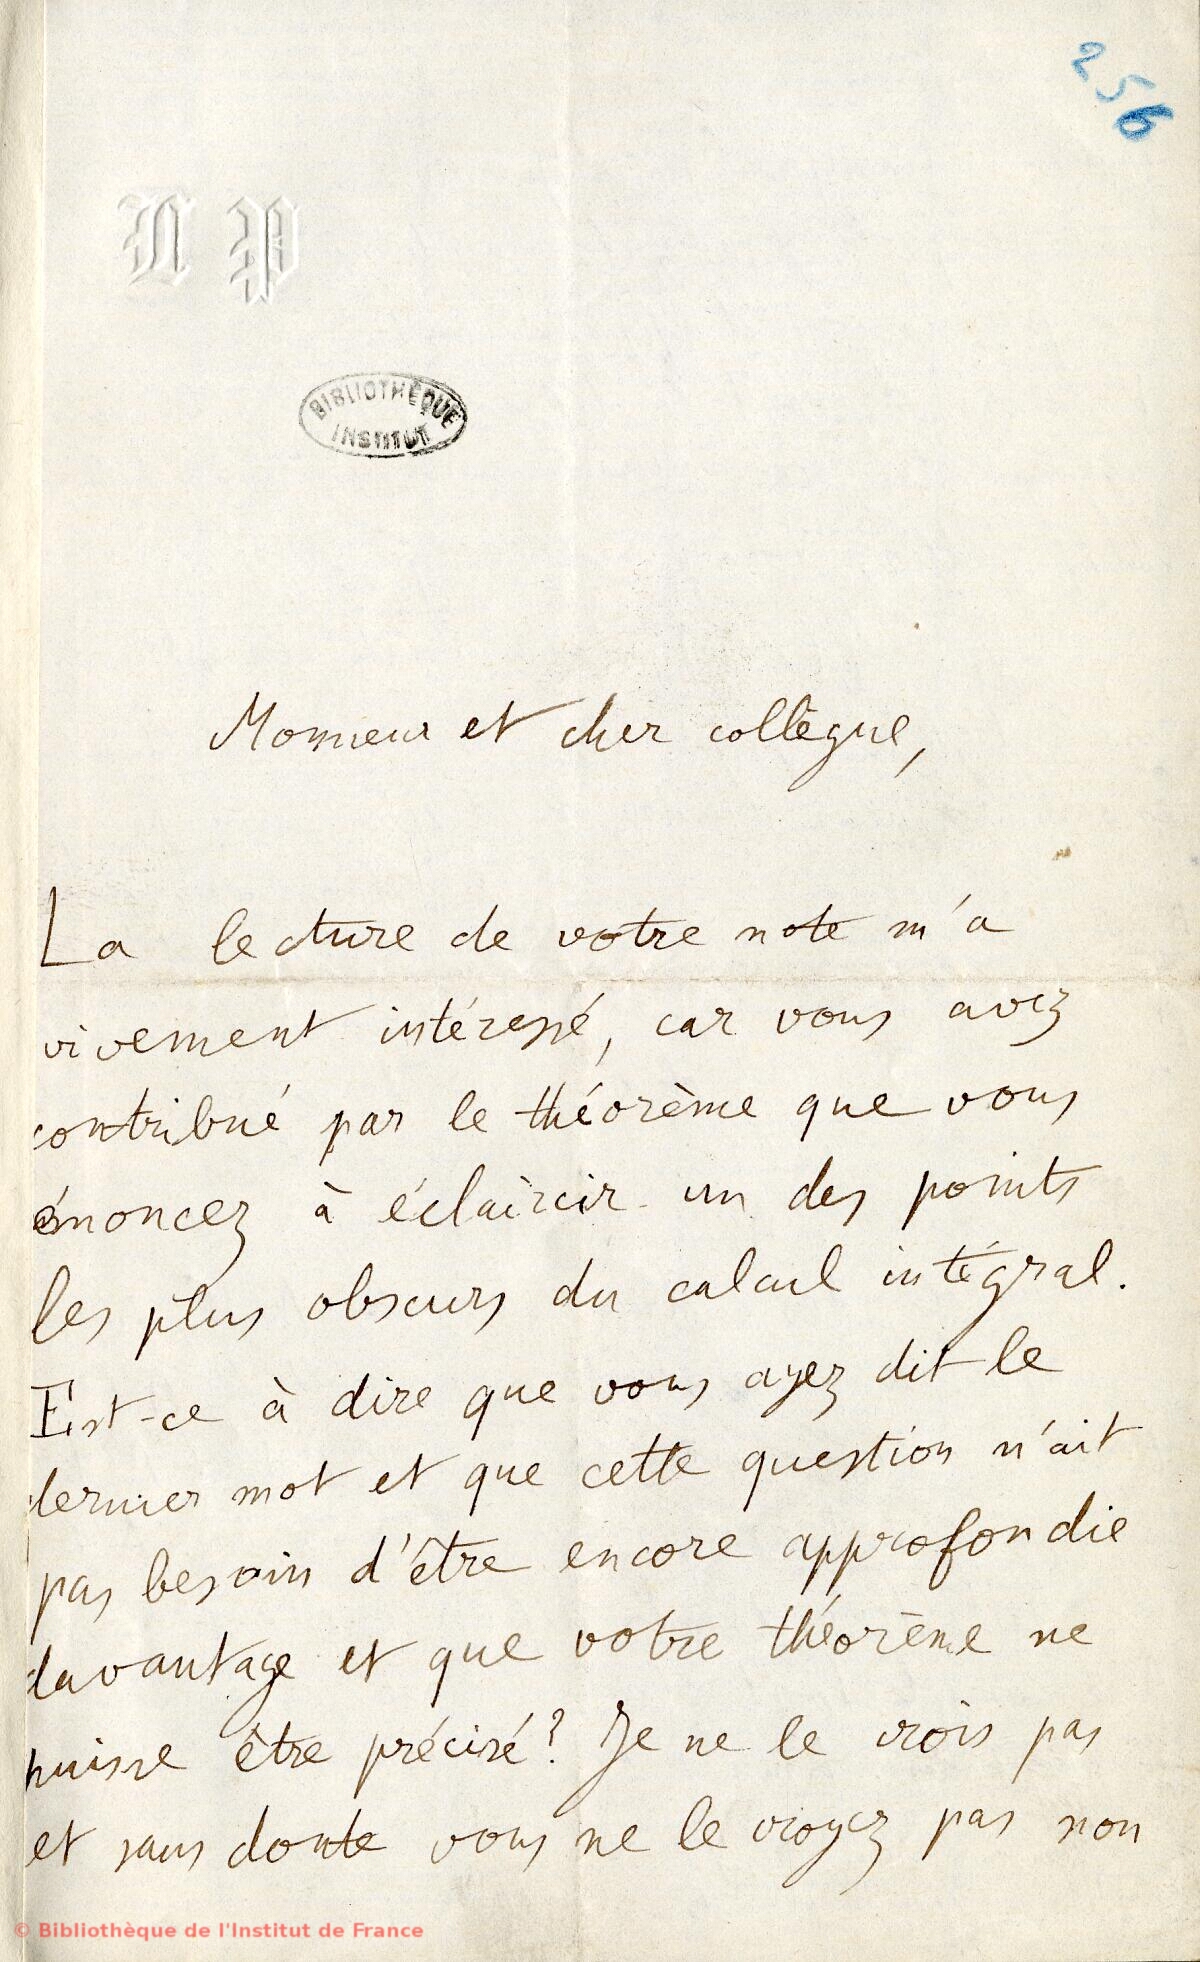 256
N P
BIBLIOTHÈQUE
INSTITUT
Monsieur et cher collègue,
La lecture de votre note m'a
vivement intéressé, car vous avez
contribué par le théorème que vous
énoncez à éclaircir un des points
les plus obscurs du calcul intégral.
Est-ce à dire que vous ayez dit le
dernier mot et que cette question n'ait
pas besoin d'être encore approfondie
davantage et que votre théorème ne
puisse être précisé? Je ne le crois pas
et sans doute vous ne le croyez pas non
© Bibliothèque de l'Institut de France